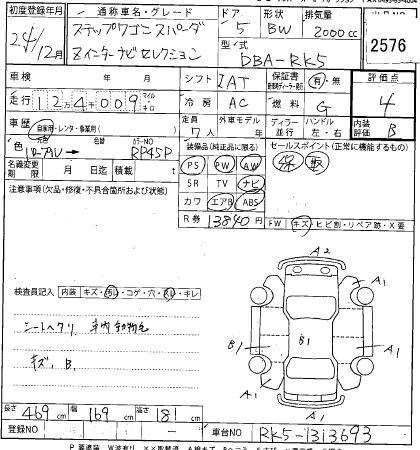 初度登録年月 通称車名・グレード ドア 形状 排気量
24年12月 ステップワゴン スパーダ 5 BW 2000cc
Zインターナビセレクション 型式 DBA-RK5
2576
車検 年 月 日 シフト IAT 保証書 有・無 評価点
走行 124009 マイル キロ 冷房 AC 燃料 G 4
車歴 自家用・レンタ・事業用( ) 定員 7人 外車モデル 年 ディラー 並行 ハンドル 左・右 内装評価 B
色 元色 色替 カラーNO RP45P
装備品(純正品に限る) セールスポイント(正常に機能するもの)
名義変更期限 月 日迄 積載 t
PS PW AW 保 取
注意事項(欠品・修復・不具合箇所および状態)
SR TV ナビ
カワ エアB ABS
R券 13840円
FW キズ・ヒビ割・リペア跡・X要
A2
A1 A1
検査員記入 内装 キズ・汚レ・コゲ・穴・スレ・キレ
シートヘタリ 車内動物毛
B1 B1 A1
キズ、B.
A1 A1
A1
長さ 469cm 幅 169cm 高さ 181cm
登録NO 車台NO RK5-1313693